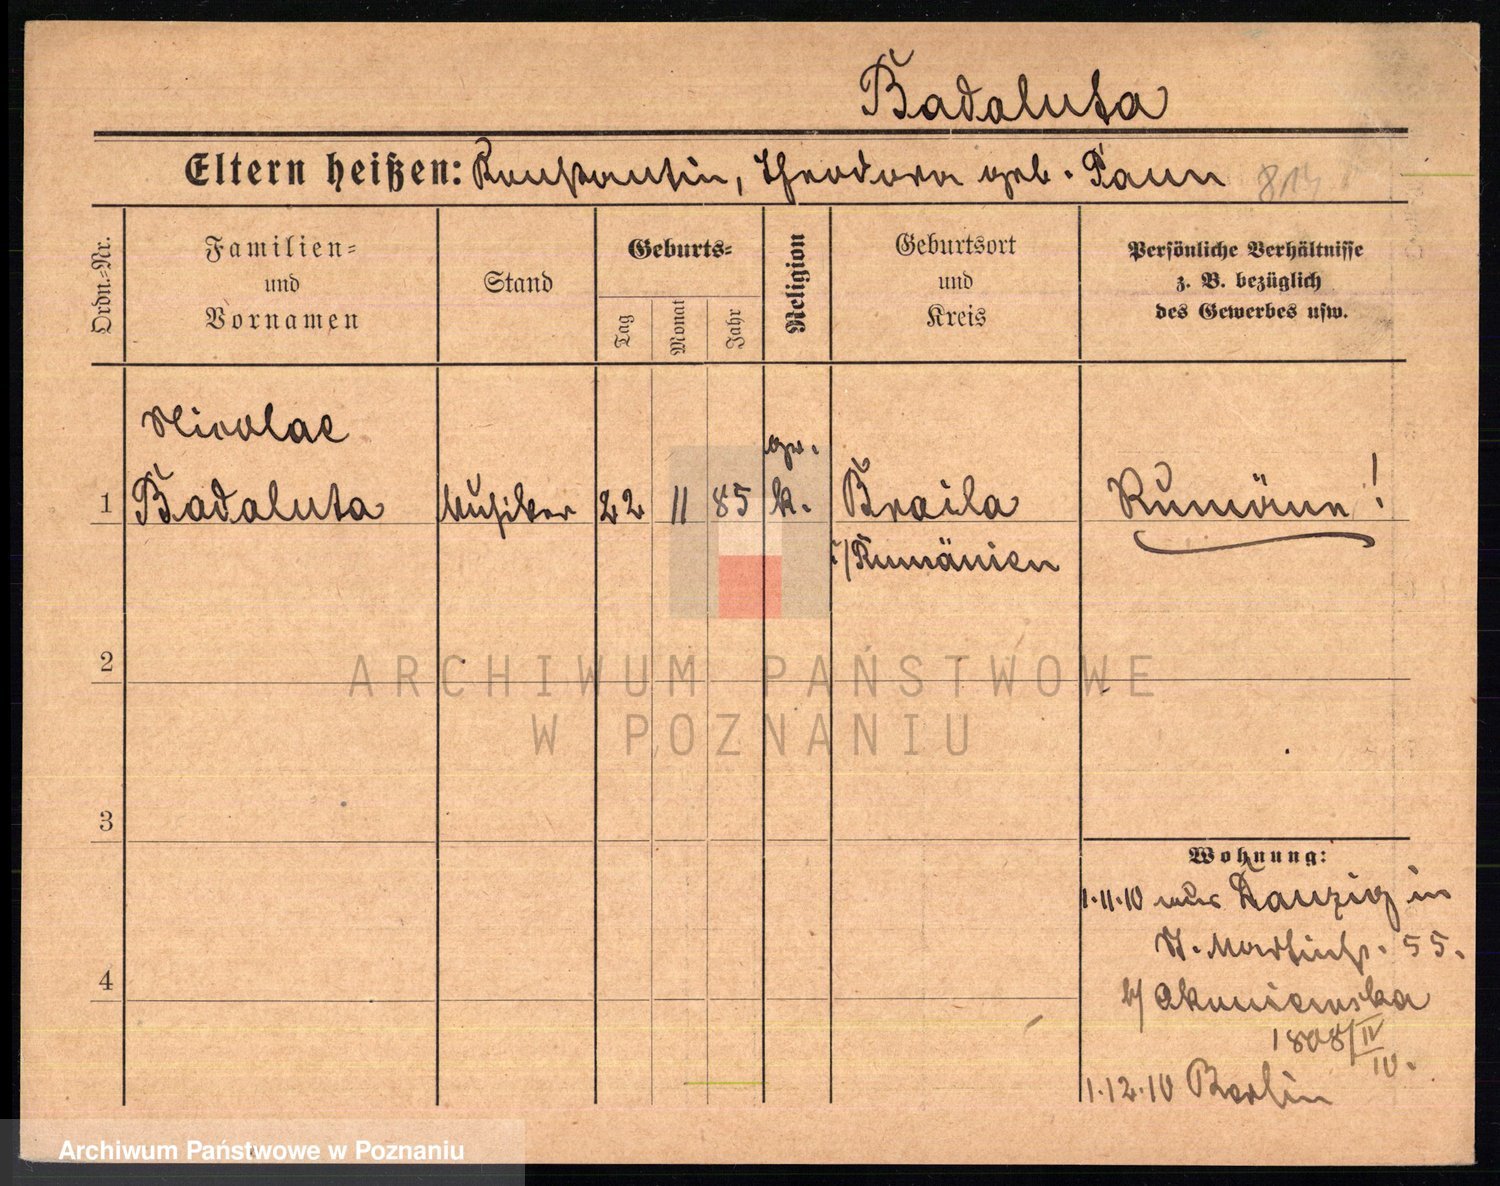 Badaluta
Eltern heißen: Konstantin, Theodora geb. Paun
Ordn.-Nr.
Familien-
und
Vornamen
Stand
Geburts-
Tag
Monat
Jahr
Religion
Geburtsort
und
Kreis
Persönliche Verhältnisse
z. B. bezüglich
des Gewerbes usw.
Nicolae
gr.
1 Badaluta Musiker 22 11 85 k. Braila Rumäne!
i/Rumänien
2
ARCHIWUM PAŃSTWOWE
W POZNANIU
3
Wohnung:
1.11.10 aus Danzig in
St. Martinstr. 55.
4
b/ Akuniewska
1808/IV
10.
1.12.10 Berlin
Archiwum Państwowe w Poznaniu